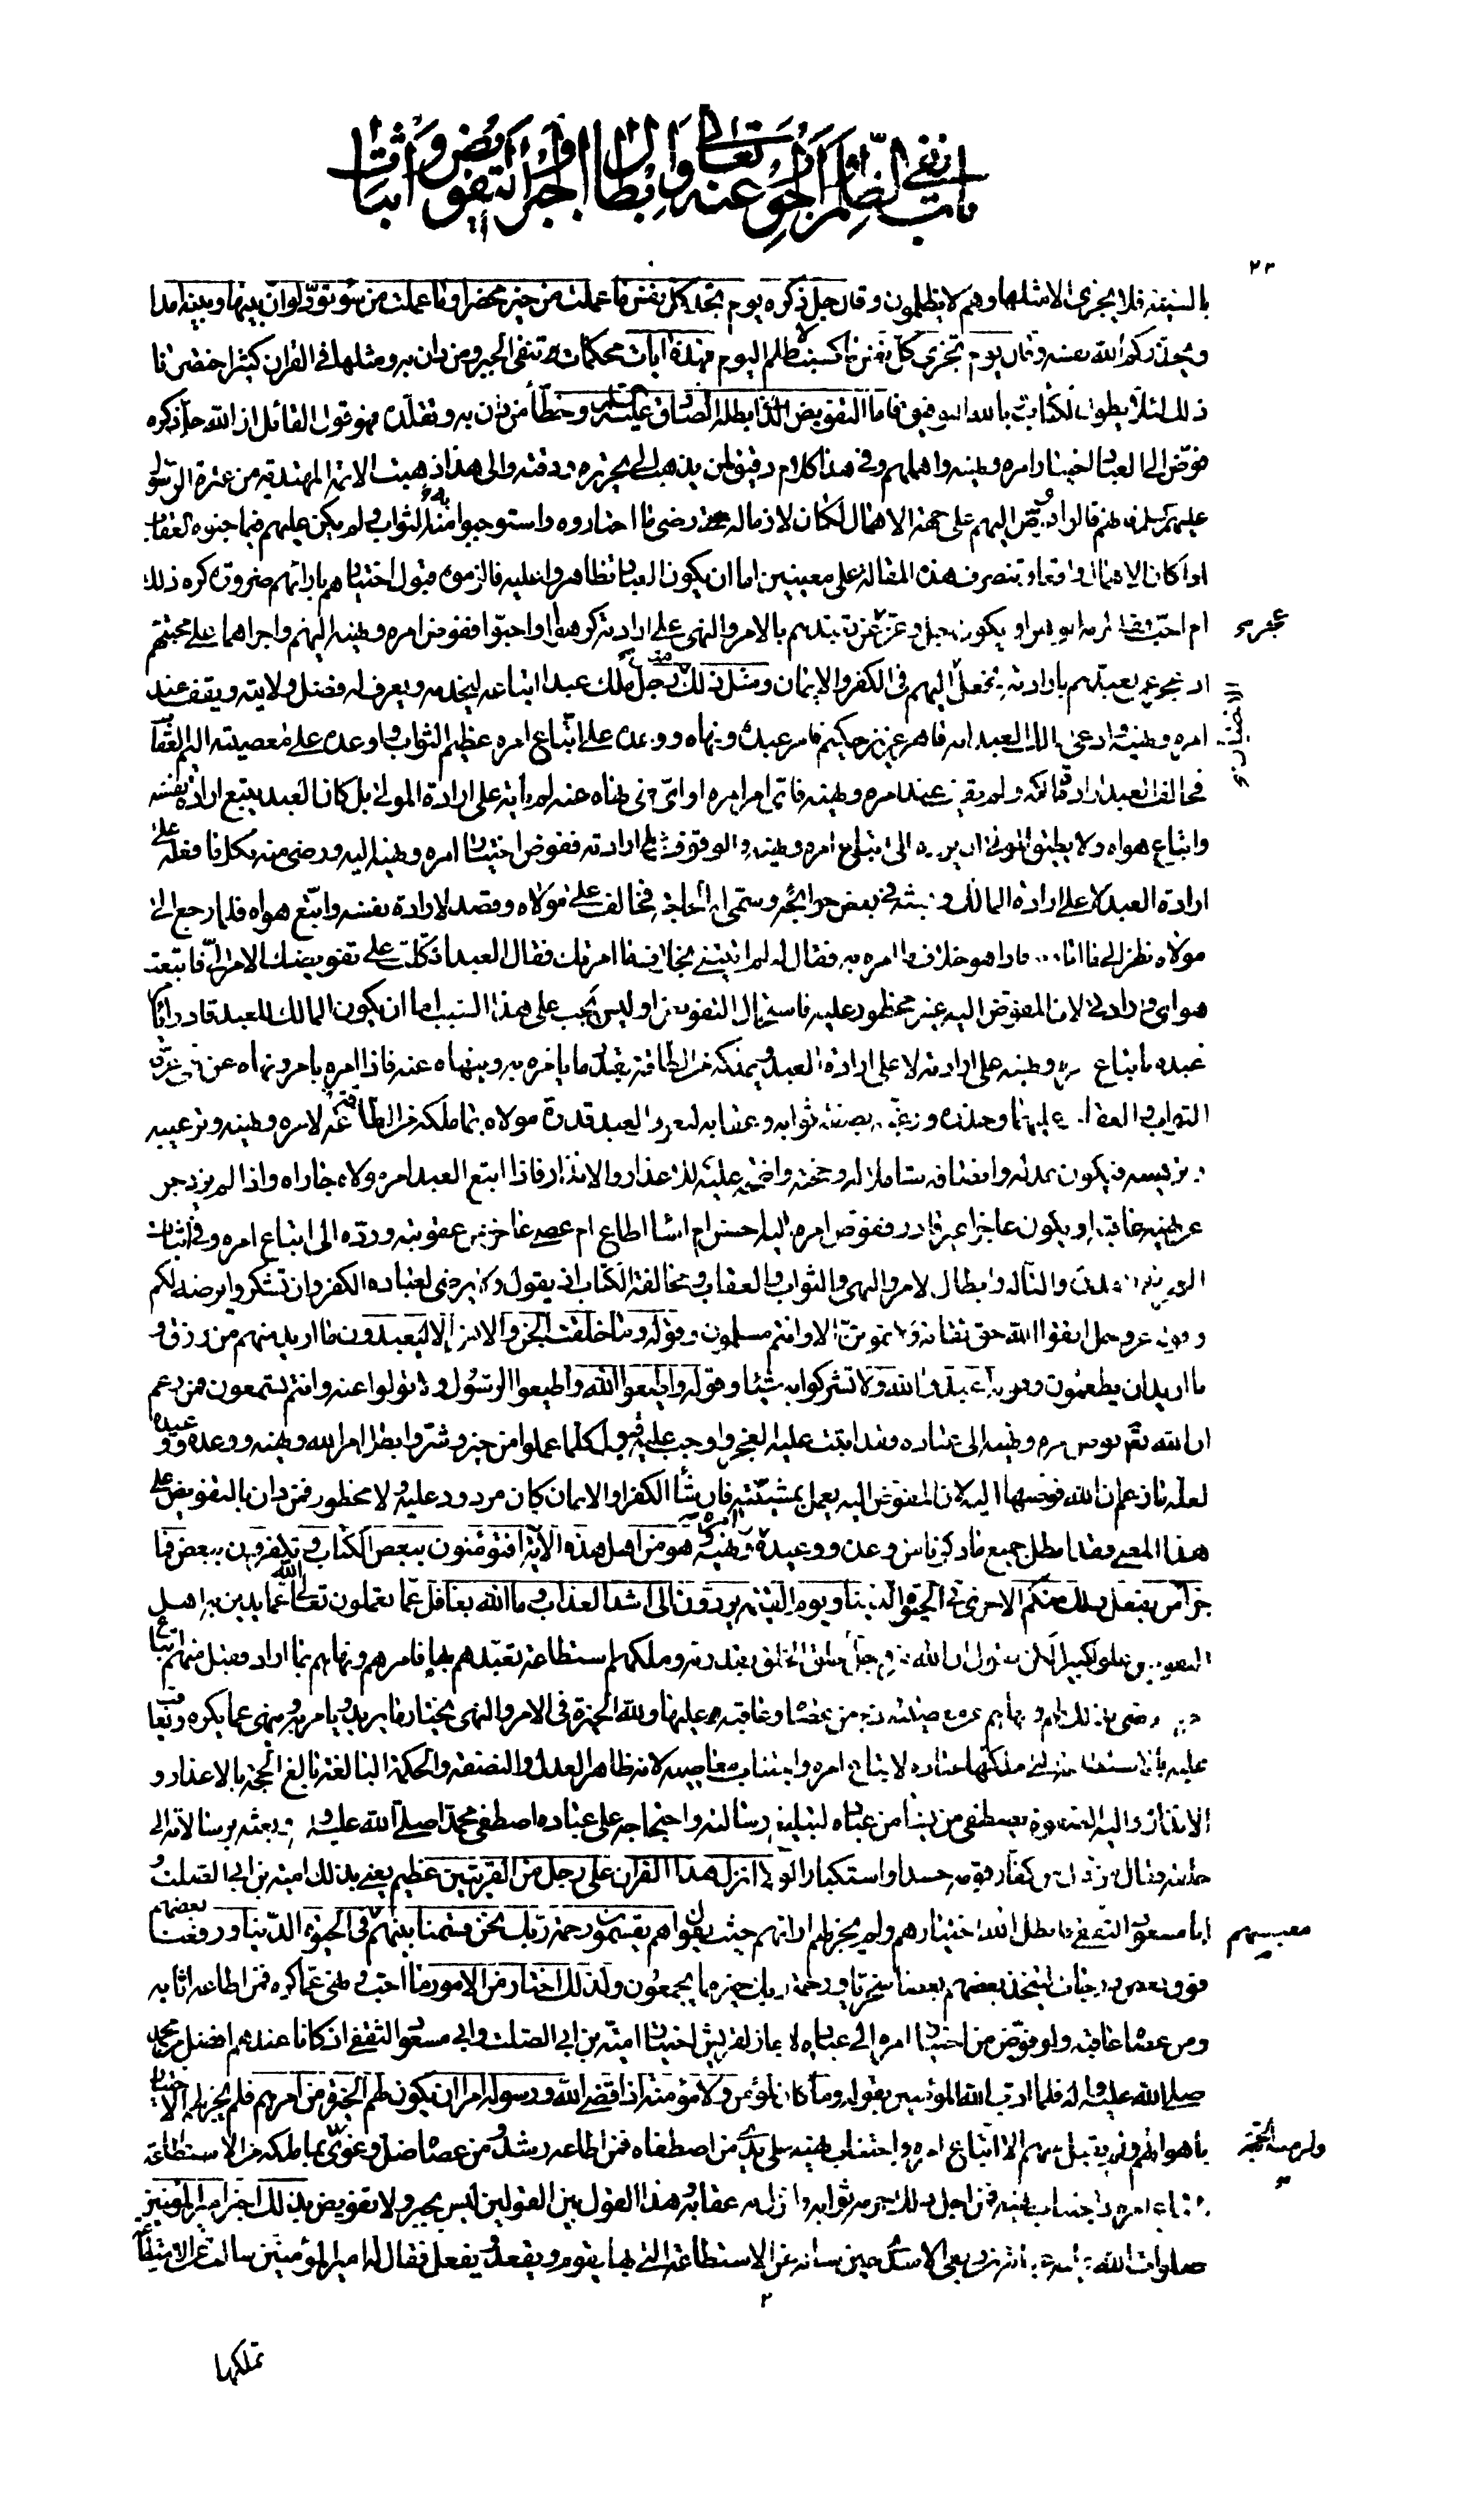 باب نفي الظلم والجور عنه تعالى وإبطال الجبر والتفويض وإثبات
٢٣
بالسيئة فلا يجزى الا مثلها وهم لا يظلمون وقال جل ذكره يوم تجد كل نفس ما عملت من خير محضرا وما عملت من سوء تود لو ان بينها وبينه امدا
ويحذركم الله نفسه وقال يوم تجزى كل نفس بما كسبت لا ظلم اليوم فهذه ايات محكمات تنفى الجبر ومن دان به ومثلها فى القران كثير اختصرنا
ذلك لئلا يطول الكتاب بالله التوفيق فاما التفويض الذى ابطله الصادق عليه السلم وخطأ من دان به وتقلده فهو قول القائل ان الله جل ذكره
فوض الى العباد اختيار امره ونهيه واهملهم وفى هذا كلام دقيق لمن يذهب الى تحريره ودقته والى هذا ذهبت الائمة المهتدية من عترة الرسول
عليهم السلم فانهم قالوا لو فوض اليهم على جهة الاهمال لكان لازما له رضى ما اختاروه واستوجبوا منه به الثواب ولم يكن عليهم فيما جنوه العقاب
اذا كان الاهمال واقعا وتنصرف هذه المقالة على معنيين اما ان يكون العباد تظاهروا عليه فالزموه قبول اختيارهم بارائهم ضرورة كره ذلك
ام احب او يكون جل وعز عجز عن تعبدهم بالامر والنهى على ارادته كرهوا او احبوا ففوض امره ونهيه اليهم واجراهما على محبتهم
اذ عجز عن تعبدهم بارادته فجعل اليهم فى الكفر والايمان ومثل ذلك رجل ملك عبدا ابتاعه ليخدمه ويعرف له فضل ولايته ويقف عند
امره ونهيه وادعى مالك العبد انه قاهر عزيز حكيم فامر عبده ونهاه ووعده على اتباع امره عظيم الثواب واوعده على معصيته اليم العقاب
فخالف العبد ارادة مالكه ولم يقف عند امره ونهيه فاى امر امره او اى نهى نهاه عنه لم ياته على ارادة المولى بل كان العبد يتبع ارادة نفسه
واتباع هواه ولا يطيق المولى ان يرده الى اتباع امره ونهيه والوقوف على ارادته ففوض اختيار امره ونهيه اليه ورضى منه بكل ما فعله على
ارادة العبد لا على ارادة المالك وبعثه فى بعض حوائجه وسمى له الحاجة فخالف على مولاه وقصد لارادة نفسه واتبع هواه فلما رجع الى
مولاه نظر الى ما اتاه فاذا هو خلاف ما امره به فقال له لم اتيتنى بخلاف ما امرتك فقال العبد اتكلت على تفويضك الامر الى فاتبعت
هواى وارادتى لان المفوض اليه غير محظور عليه فاستحال التفويض او ليس يجب على هذا السبب اما ان يكون المالك للعبد قادرا يامر
عبده باتباع امره ونهيه على ارادته لا على ارادة العبد ويملكه من الطاقة بقدر ما يامره به وينهاه عنه فاذا امره بامر ونهاه عن نهى عرفه
الثواب والعقاب عليهما وحذره ورغبه بصفة ثوابه وعقابه ليعرف العبد قدرة مولاه بما ملكه من الطاقة لامره ونهيه وترغيبه
وترهيبه فيكون عدله وانصافه شاملا له وحجته واضحة عليه للاعذار والانذار فاذا اتبع العبد امر مولاه جازاه واذا لم يزدجر
عن نهيه عاقبه او يكون عاجزا غير قادر ففوض امره اليه احسن ام اساء اطاع ام عصى عاجز عن عقوبته ورده الى اتباع امره وفى اثبات
العجز نفى القدرة والتاله وابطال الامر والنهى والثواب والعقاب ومخالفة الكتاب اذ يقول ولا يرضى لعباده الكفر وان تشكروا يرضه لكم
وقوله عز وجل اتقوا الله حق تقاته ولا تموتن الا وانتم مسلمون وقوله وما خلقت الجن والانس الا ليعبدون ما اريد منهم من رزق و
ما اريد ان يطعمون وقوله اعبدوا الله ولا تشركوا به شيئا وقوله واطيعوا الله واطيعوا الرسول ولا تولوا عنه وانتم تسمعون فمن زعم
ان الله تعالى فوض امره ونهيه الى عباده فقد اثبت عليه العجز واوجب عليه قبول كلما عملوا من خير وشر وابطل امر الله ونهيه ووعده ووعيده
لعلة ما زعم ان الله فوضها اليه لان المفوض اليه يعمل بمشيئته فان شاء الكفر او الايمان كان مردودا عليه ولا محظور فمن دان بالتفويض على
هذا المعنى فقد ابطل جميع ما ذكرنا من وعده ووعيده وامره ونهيه وهو من اهل هذه الاية افتؤمنون ببعض الكتاب وتكفرون ببعض فما
جزاء من يفعل ذلك منكم الا خزى فى الحيوة الدنيا ويوم القيمة يردون الى اشد العذاب وما الله بغافل عما تعملون تعالى الله عما يدين به اهل
التفويض علوا كبيرا لكن نقول ان الله عز وجل خلق الخلق بقدرته وملكهم استطاعة تعبدهم بها فامرهم ونهاهم بما اراد فقبل منهم اتباع
امره ورضى بذلك لهم ونهاهم عن معصيته وذم من عصاه وعاقبه عليها ولله الخيرة فى الامر والنهى يختار ما يريد ويامر به وينهى عما يكره ويعاقب
عليه بالاستطاعة التى ملكها عباده لاتباع امره واجتناب معاصيه لانه ظاهر العدل والنصفة والحكمة البالغة بالغ الحجة بالاعذار و
الانذار واليه الصفوة يصطفى من يشاء من عباده لتبليغ رسالته واحتجاجه على عباده اصطفى محمدا صلى الله عليه واله وبعثه برسالاته الى
خلقه فقال من قال من كفار قومه حسدا واستكبارا لولا انزل هذا القران على رجل من القريتين عظيم يعنى بذلك امية بن ابى الصلت و
ابا مسعود الثقفى فابطل الله اختيارهم ولم يجز لهم ارائهم حيث يقول اهم يقسمون رحمة ربك نحن قسمنا بينهم معيشتهم فى الحيوة الدنيا ورفعنا بعضهم
فوق بعض درجات ليتخذ بعضهم بعضا سخريا ورحمة ربك خير مما يجمعون ولذلك اختار من الامور ما احب ونهى عما كره فمن اطاعه اثابه
ومن عصاه عاقبه ولو فوض من اختيار امره الى عباده لاجاز لقريش اختيار امية بن ابى الصلت وابى مسعود الثقفى اذ كانا عندهم افضل من محمد
صلى الله عليه واله فلما ادب الله المؤمنين بقوله وما كان لمؤمن ولا مؤمنة اذا قضى الله ورسوله امرا ان يكون لهم الخيرة من امرهم فلم يجز لهم الاختيار
باهوائهم ولم يقبل منهم الا اتباع امره واجتناب نهيه على يدى من اصطفاه فمن اطاعه رشد ومن عصاه ضل وغوى ولزمته الحجة بما ملكه من الاستطاعة
لاتباع امره واجتناب نهيه فمن اجل ذلك حرمه ثوابه وانزل به عقابه وهذا القول بين القولين ليس بجبر ولا تفويض بذلك اخبر امير المؤمنين
صلوات الله عليه عباية بن ربعى الاسدى حين ساله عن الاستطاعة التى بها يقوم ويقعد ويفعل فقال له امير المؤمنين سالت عن الاستطاعة
٢
تملكها